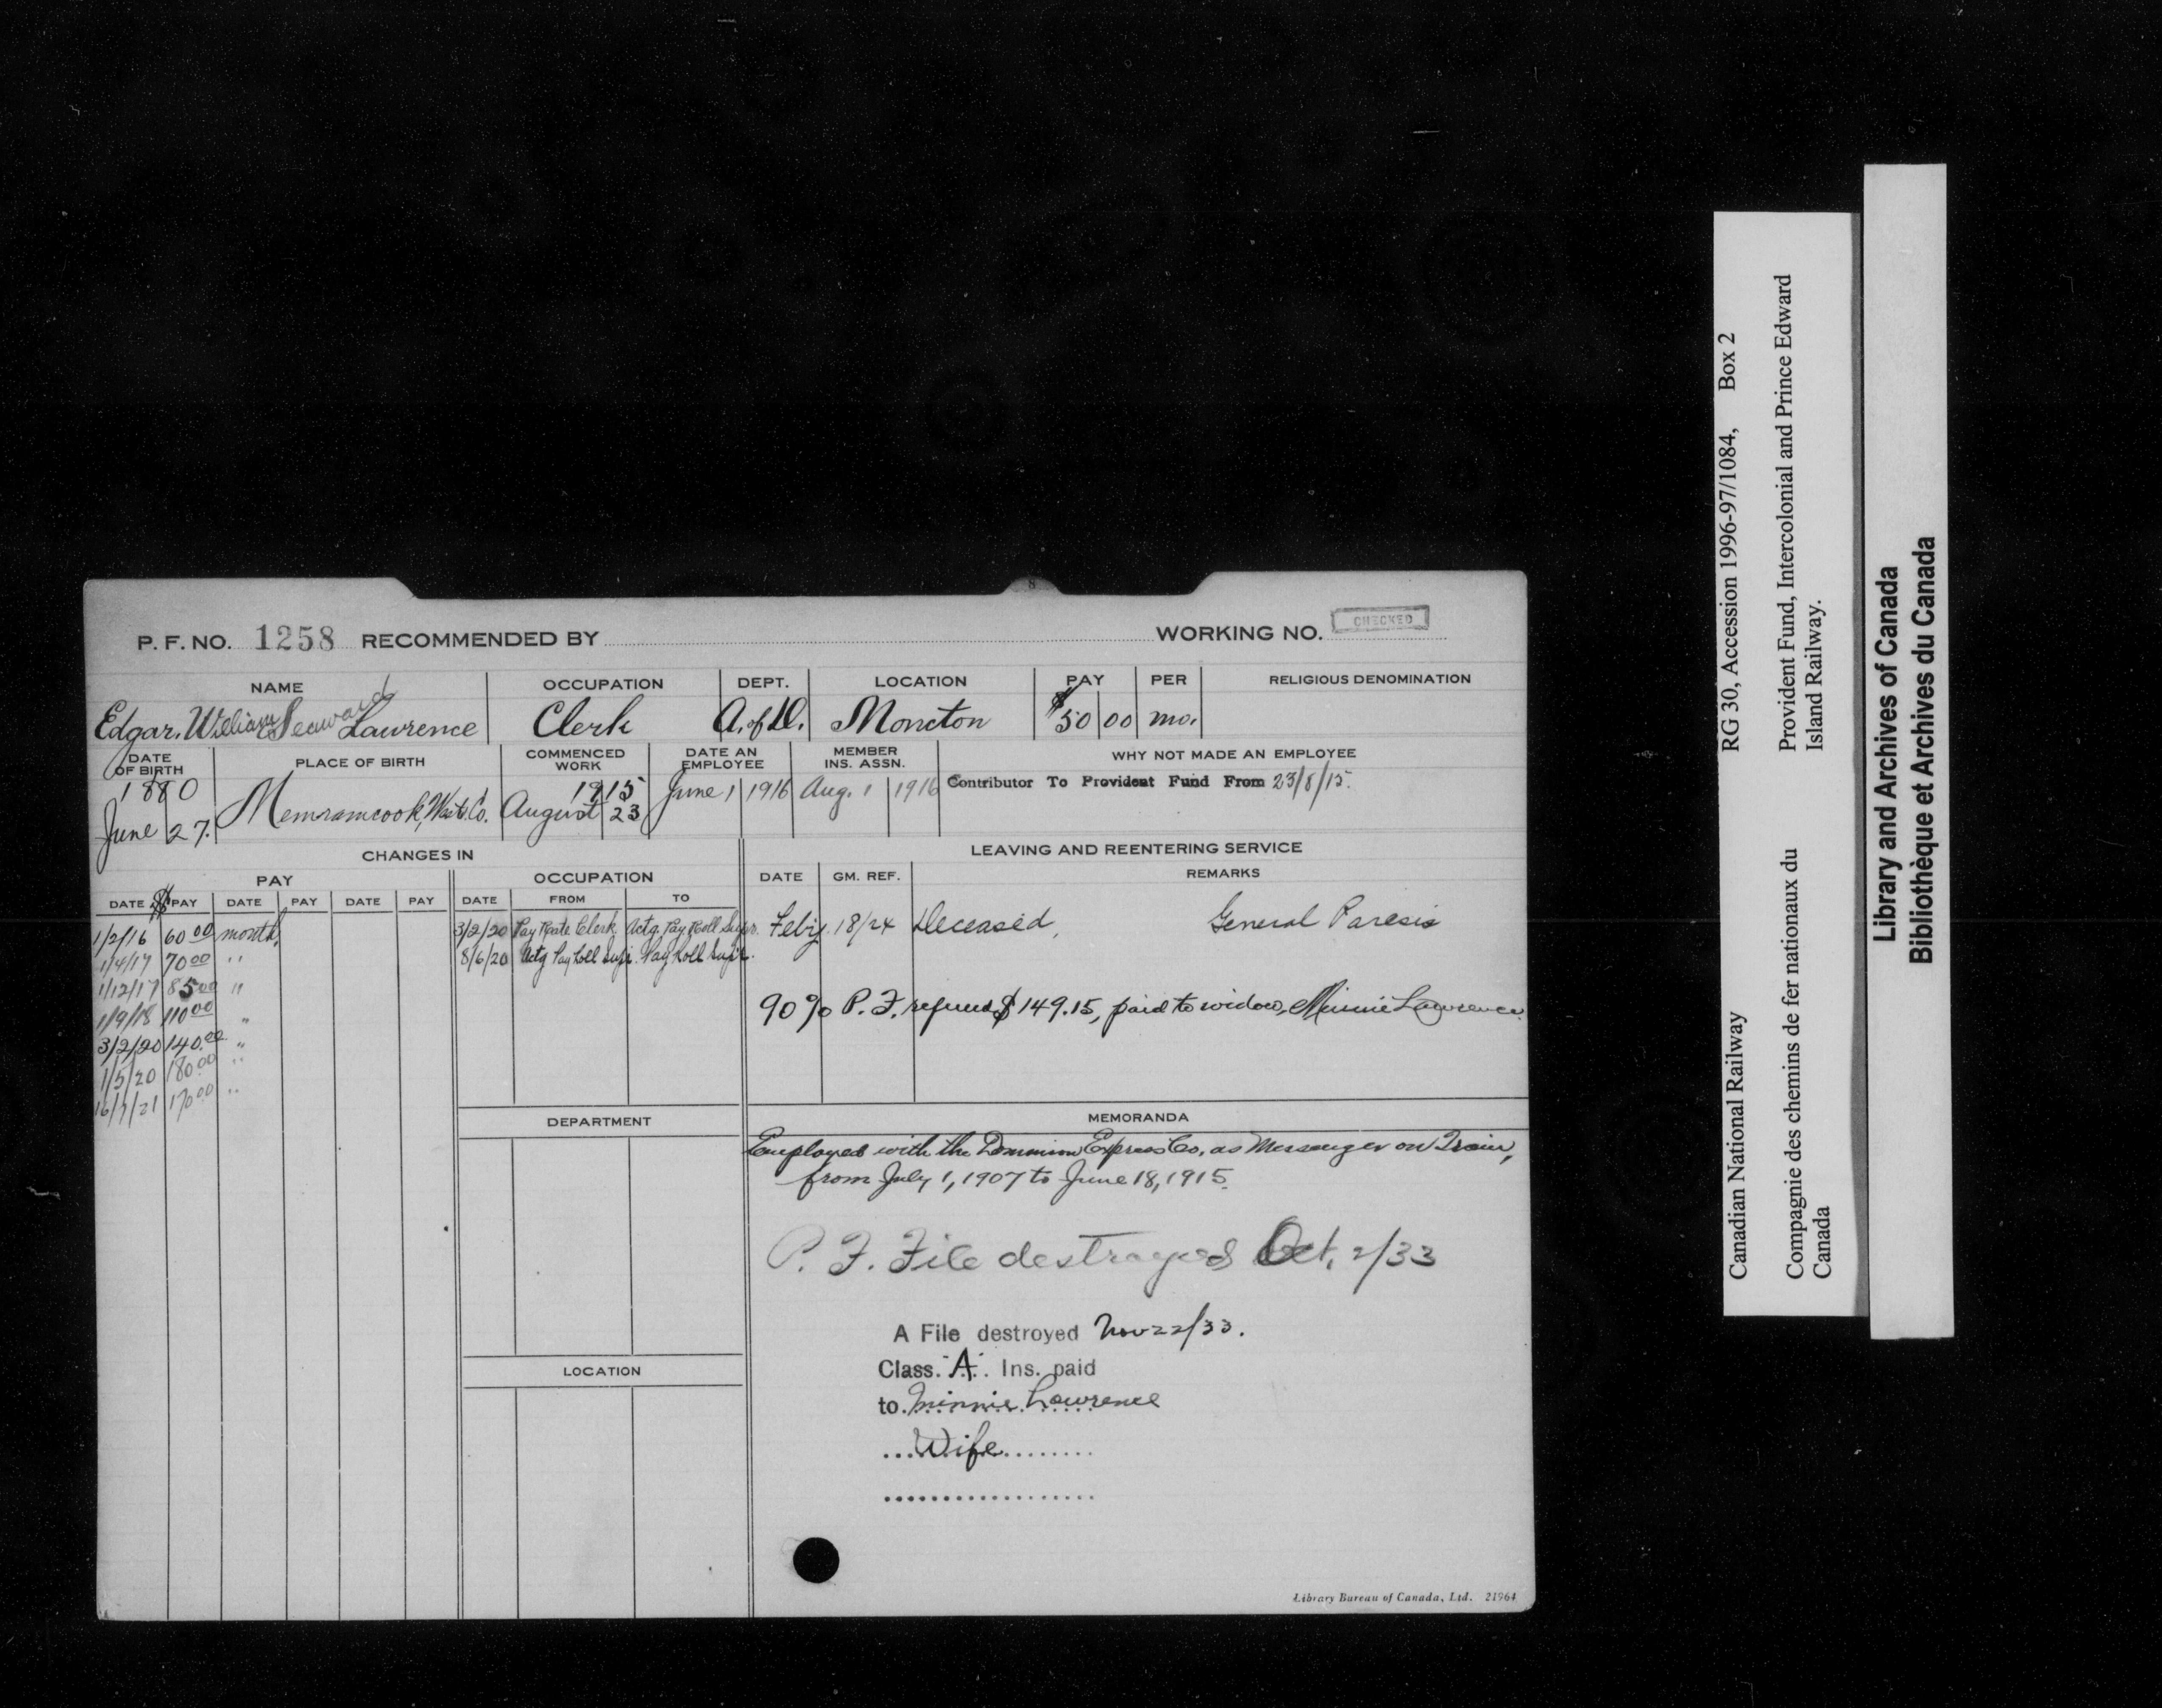 8
P. F. NO. 1258 RECOMMENDED BY WORKING NO. CHECKED
NAME OCCUPATION DEPT. LOCATION PAY PER RELIGIOUS DENOMINATION
Edgar, William Seaward Lawrence Clerk A. of D. Moncton $50 00 mo.
DATE OF BIRTH PLACE OF BIRTH COMMENCED WORK DATE AN EMPLOYEE MEMBER INS. ASSN. WHY NOT MADE AN EMPLOYEE
1880 June 27. Memramcook, West. Co. 1915 August 23 June 1 1916 Aug. 1 1916 Contributor To Provident Fund From 23/8/15.
CHANGES IN LEAVING AND REENTERING SERVICE
PAY OCCUPATION DATE GM. REF. REMARKS
DATE $ PAY DATE PAY DATE PAY DATE FROM TO
1/2/16 60 00 month, 3/2/20 Pay Rate Clerk Actg. Pay Roll Supr. Feby. 18/24 Deceased, General Paresis
1/4/17 70 00 " 8/6/20 Actg Pay Roll Supr. Pay Roll Supr.
1/12/17 85 00 "
1/9/18 110 00 " 90% P. F. refund $149.15, paid to widow, Minnie Lawrence.
3/2/20 140.00 "
1/5/20 180 00 "
16/7/21 170 00 "
DEPARTMENT MEMORANDA
Employed with the Dominion Express Co, as Messenger on Train,
from July 1, 1907 to June 18, 1915.
P. F. File destroyed Oct. 2/33
A File destroyed Nov 22/33.
Class. A. Ins. paid
LOCATION
to Minnie Lawrence
Wife
Library Bureau of Canada, Ltd. 21964
Canadian National Railway RG 30, Accession 1996-97/1084, Box 2
Compagnie des chemins de fer nationaux du Provident Fund, Intercolonial and Prince Edward
Canada Island Railway.
Library and Archives of Canada
Bibliothèque et Archives du Canada